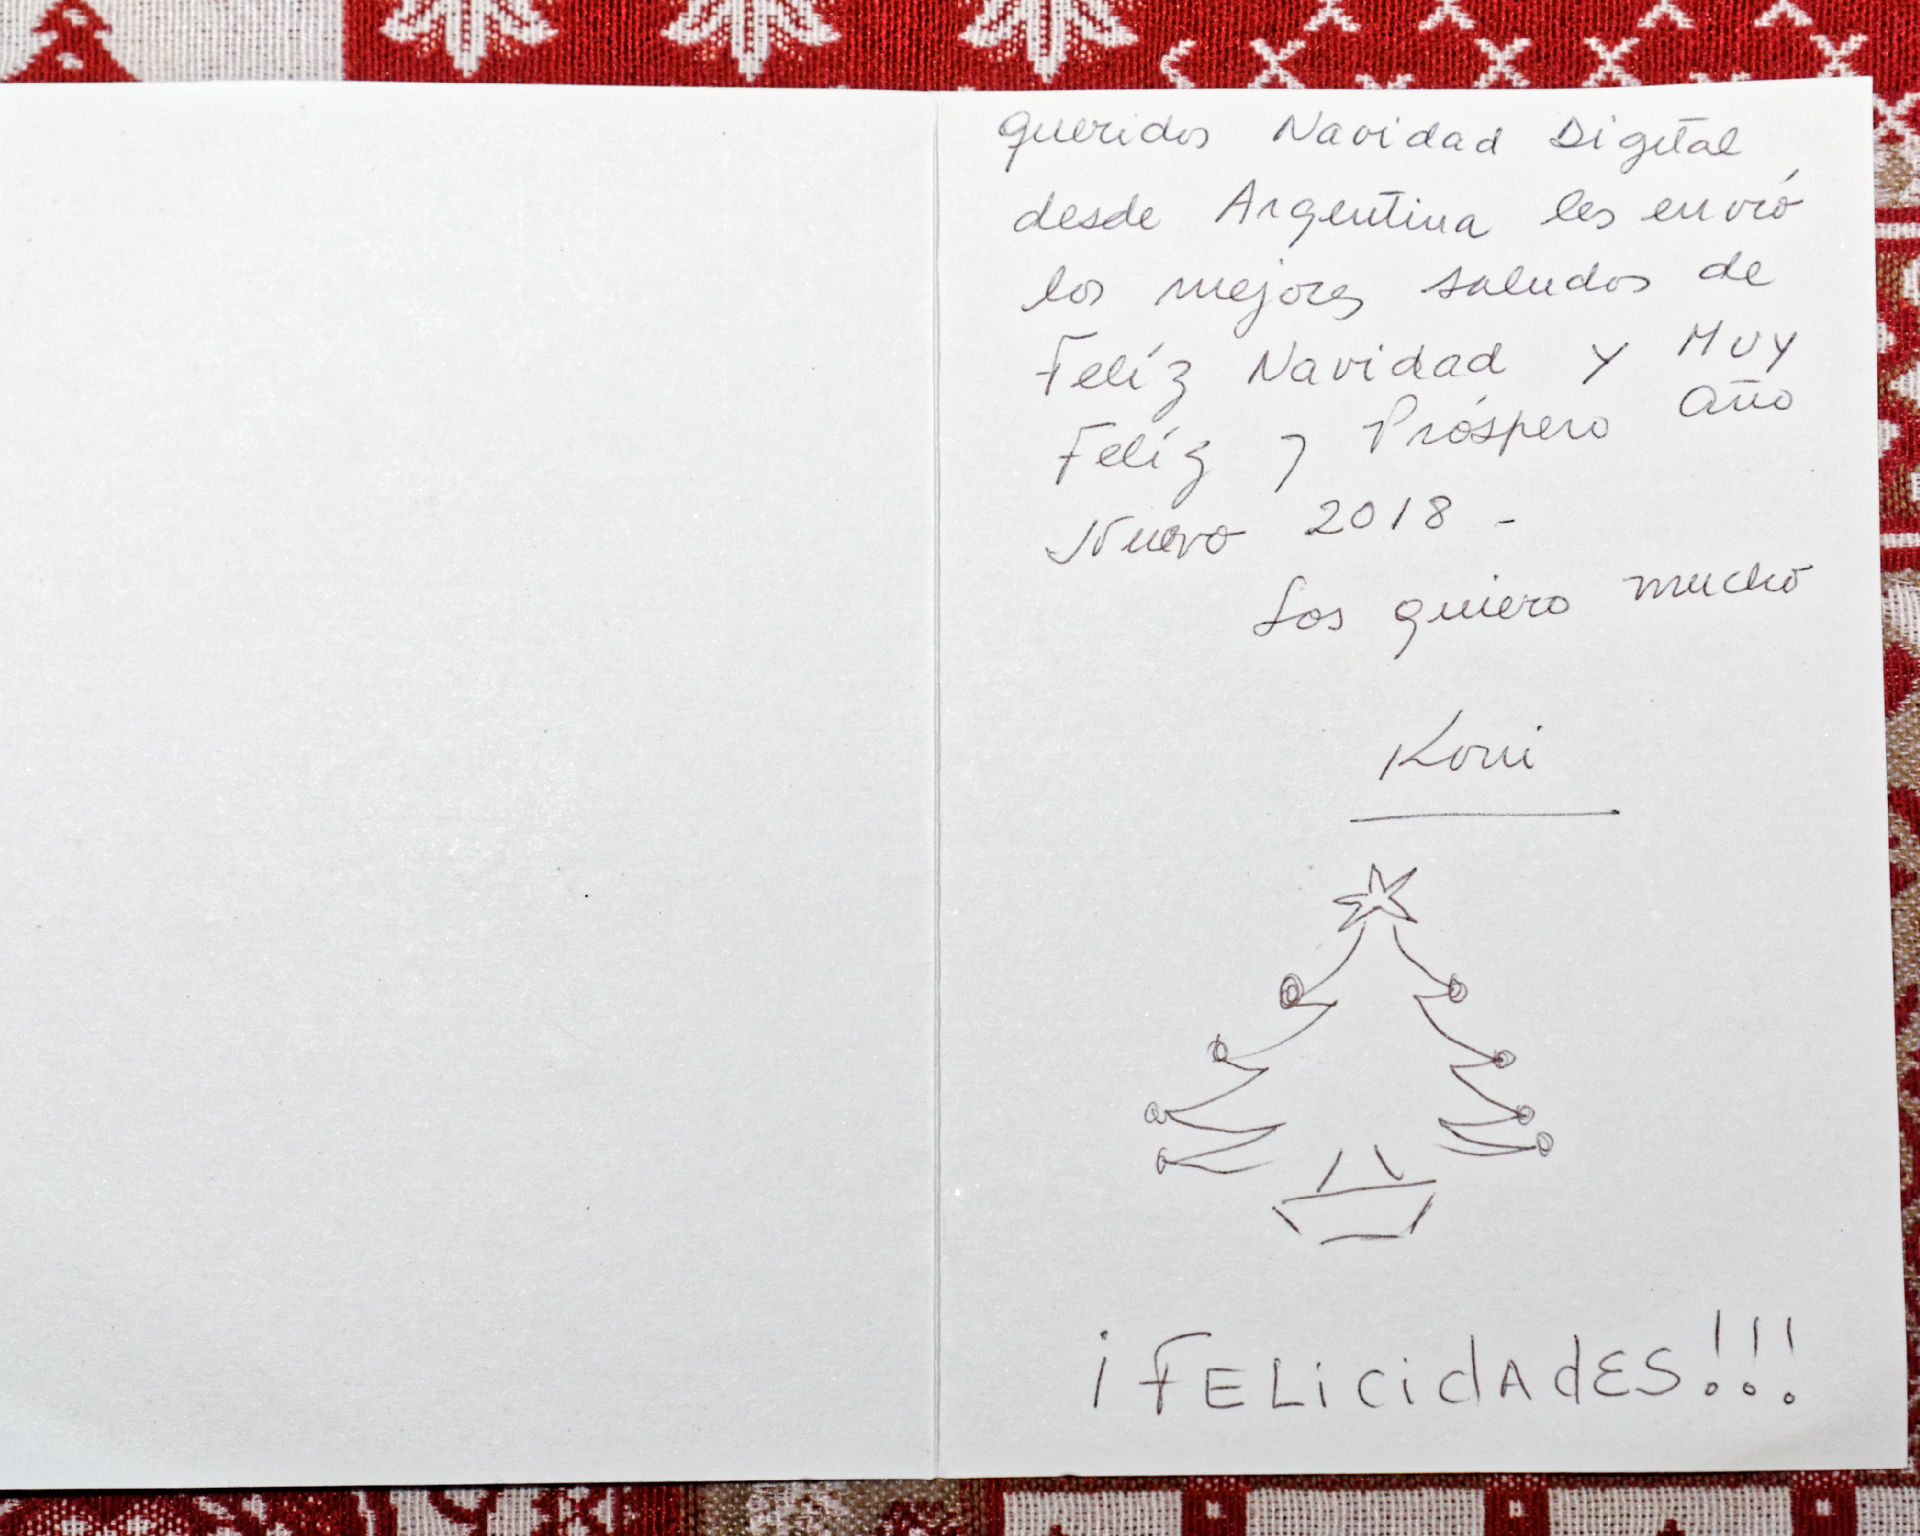 Queridos Navidad Digital
desde Argentina les envió
los mejores saludos de
Felíz Navidad y Muy
Felíz y Próspero año
Nuevo 2018 -
Los quiero mucho
Koni
¡FELiCidAdES!!!